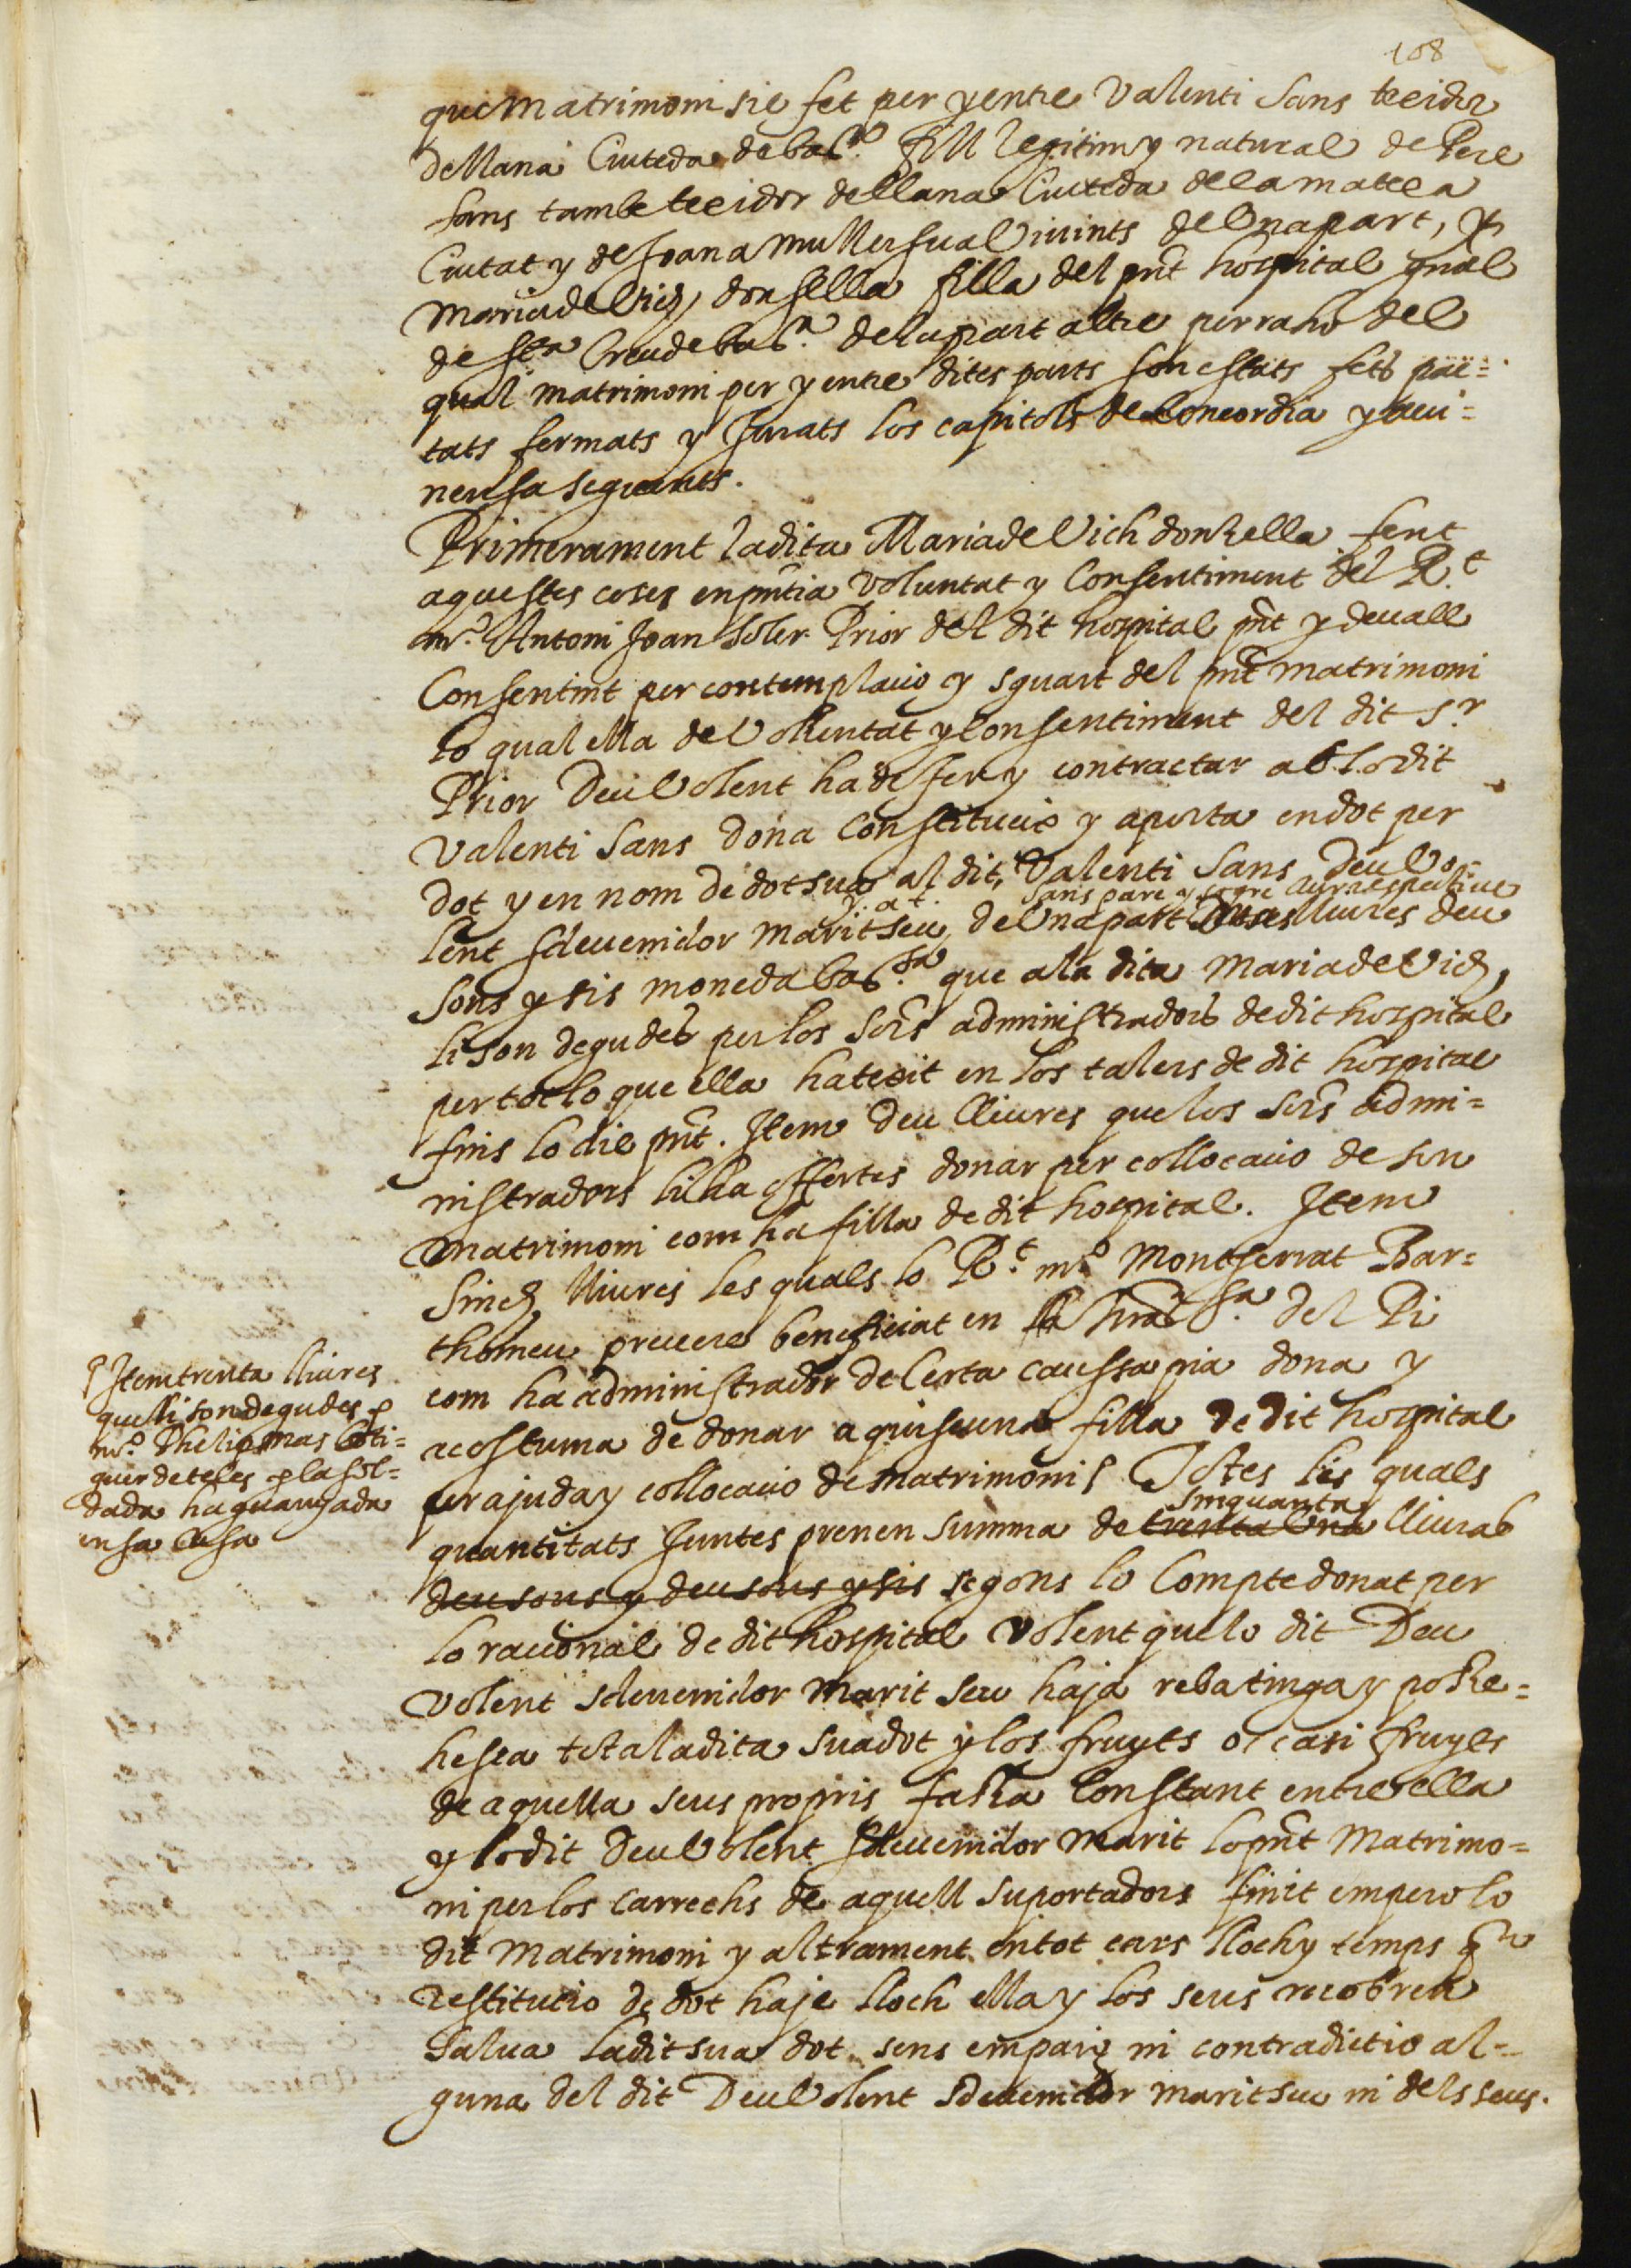 108
que matrimoni sie fet per y entre Valenti Sans texidor
de llana Ciuteda de bar.ᵃ fill legitim y natural de Pere
Sans tambe texidor de llana Ciuteda de la matexa
Ciutat y de Joana muller sua Vivints de Una part, y
Maria de Vich donsella filla del pnt hospital gnal
de Sta Creu de bar.ᵃ de la part altre per raho del
qual matrimoni per y entre dites parts son estats fets pac=
tats fermats y Jurats los capitols de Concordia y aui=
nensa seguents.
Primerament la dita Maria de Vich donzella fent
aquestes coses en pntia Voluntat y Consentiment del R.t
mº. Antoni Joan Soler Prior del dit hospital pnt y devall
Consentint per contemplacio y sguart del pnt matrimoni
lo qual ella de Voluntat y Consentiment del dit Sr
Prior Deu Volent ha de fer y contractar ab lo dit
Valenti Sans dona Constitueix y aporta en dot per
dot y en nom de dot sua al dit Valenti Sans Deu Vo-
Sans pare y sogre llur respective
lent sdevenidor marit seu, de Una part lliures deu
sons y sis moneda bar.ᵃ que a la dita Maria de Vich
li son degudes per los Srs administradors de dit hospital
per tot lo que ella ha texit en los talers de dit hospital
fins lo die pnt. Item deu lliures que los Srs admi=
nistradors li ha offertes donar per collocacio de son
matrimoni com ha filla de dit hospital. Item
Sinch lliures les quals lo R.t mº. Montserrat Bar=
thomeu prevere beneficiat en la del Pi
com ha administrador de Certa caussa pia dona y
acostuma de donar a quiscuna filla de dit hospital
per ajuda y collocacio de matrimoni Totes les quals
Sinquanta
quantitats Juntes prenen summa de trenta Una lliuras
deu sous y deu sous y sis segons lo Compte donat per
lo racional de dit hospital Volent que lo dit Deu
Volent sdevenidor marit seu haja reba tinga y posse=
hesca tota la dita sua dot y los fruyts o casi fruyts
de aquella seus propris fassa Constant entre ella
y lo dit Deu Volent sdevenidor marit lo pnt Matrimo=
ni per los carrechs de aquell suportadors finit empero lo
dit Matrimoni y altrament en tot cars lloch y temps que
restitutio de dot haje lloch ella y los seus recobren
salva la dit sua dot sens empaig ni contradictio al=
guna del dit Deu Volent sdevenidor marit seu ni dels seus.
Item trenta lliures
que li son degudes p
mº. Phelip mas boti=
guer de teles p la sol=
dada ha guanyada
en sa casa